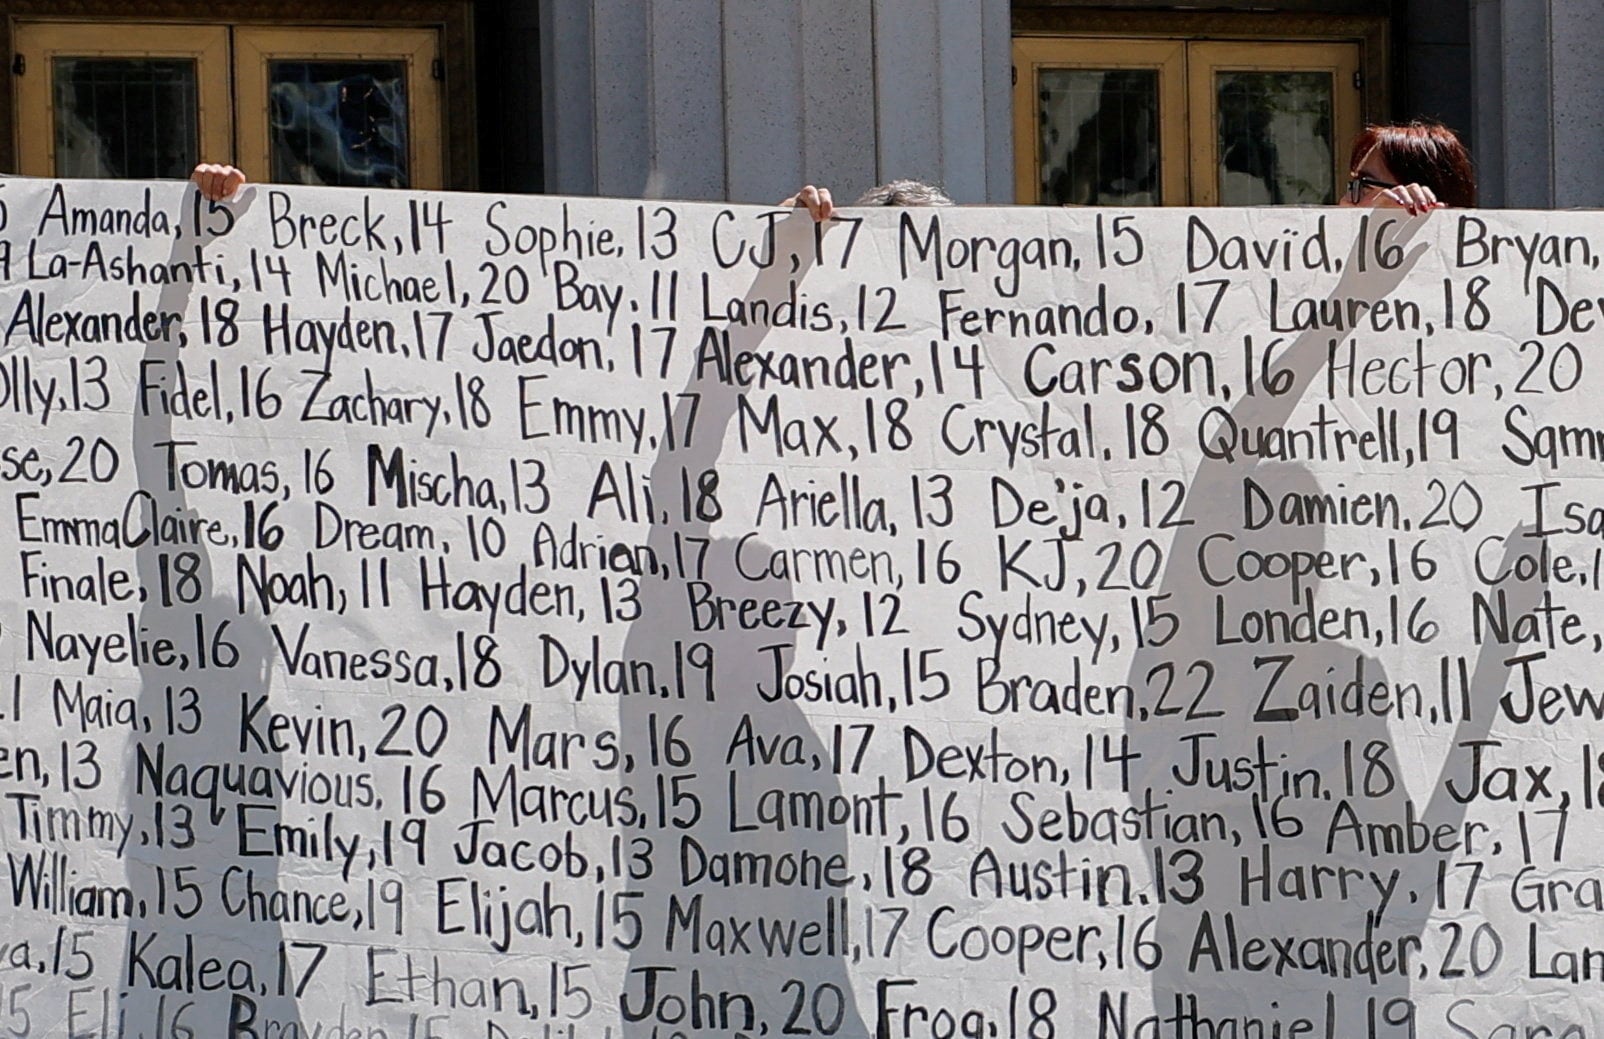 Amanda, 15 Breck, 14 Sophie, 13 CJ, 17 Morgan, 15 Davïd, 16 Bryan,
La-Ashanti, 14 Michael, 20 Bay, 11 Landis, 12 Fernando, 17 Lauren, 18 De
Alexander, 18 Hayden, 17 Jaedon, 17 Alexander, 14 Carson, 16 Hector, 20
olly, 13 Fidel, 16 Zachary, 18 Emmy, 17 Max, 18 Crystal, 18 Quantrell, 19 Sam
se, 20 Tomas, 16 Mischa, 13 Ali, 18 Ariella, 13 De'ja, 12 Damien, 20 Isa
EmmaClaire, 16 Dream, 10 Adrian, 17 Carmen, 16 KJ, 20 Cooper, 16 Cole, 1
Finale, 18 Noah, 11 Hayden, 13 Breezy, 12 Sydney, 15 Londen, 16 Nate,
Nayelie, 16 Vanessa, 18 Dylan, 19 Josiah, 15 Braden, 22 Zaiden, 11 Jew
1 Maia, 13 Kevin, 20 Mars, 16 Ava, 17 Dexton, 14 Justin, 18 Jax, 18
en, 13 Naquavious, 16 Marcus, 15 Lamont, 16 Sebastian, 16 Amber, 17
Timmy, 13 Emily, 19 Jacob, 13 Damone, 18 Austin, 13 Harry, 17 Gra
William, 15 Chance, 19 Elijah, 15 Maxwell, 17 Cooper, 16 Alexander, 20 Lan
a, 15 Kalea, 17 Ethan, 15 John, 20 Frog, 18 Nathaniel, 19 Sara
5 Eli, 16 Brayden, 15